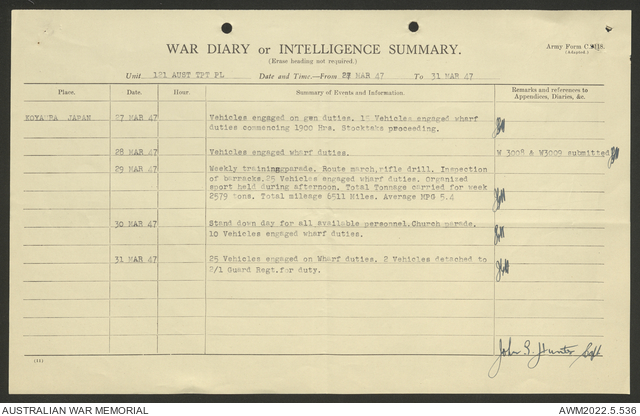 WAR DIARY or INTELLIGENCE SUMMARY.
Army Form C.2118.
(Adapted.)
(Erase heading not required.)
Unit 121 AUST TPT PL Date and Time.—From 27 MAR 47 To 31 MAR 47
Place. Date. Hour. Summary of Events and Information. Remarks and references to
Appendices, Diaries, &c.
KOYAURA JAPAN 27 MAR 47 Vehicles engaged on gen duties. 15 Vehicles engaged wharf
duties commencing 1900 Hrs. Stocktake proceeding.
28 MAR 47 Vehicles engaged wharf duties. W 3008 & W3009 submitted
29 MAR 47 Weekly trainingparade. Route march,rifle drill. Inspection
of barracks.25 Vehicles engaged wharf duties. Organized
sport held during afternoon. Total Tonnage carried for week
2579 tons. Total mileage 6511 Miles. Average MPG 5.4
30 MAR 47 Stand down day for all available personnel.Church parade.
10 Vehicles engaged wharf duties.
31 MAR 47 25 Vehicles engaged on Wharf duties. 2 Vehicles detached to
2/1 Guard Regt.for duty.
John S. Hunter Capt
(11)
AUSTRALIAN WAR MEMORIAL AWM2022.5.536